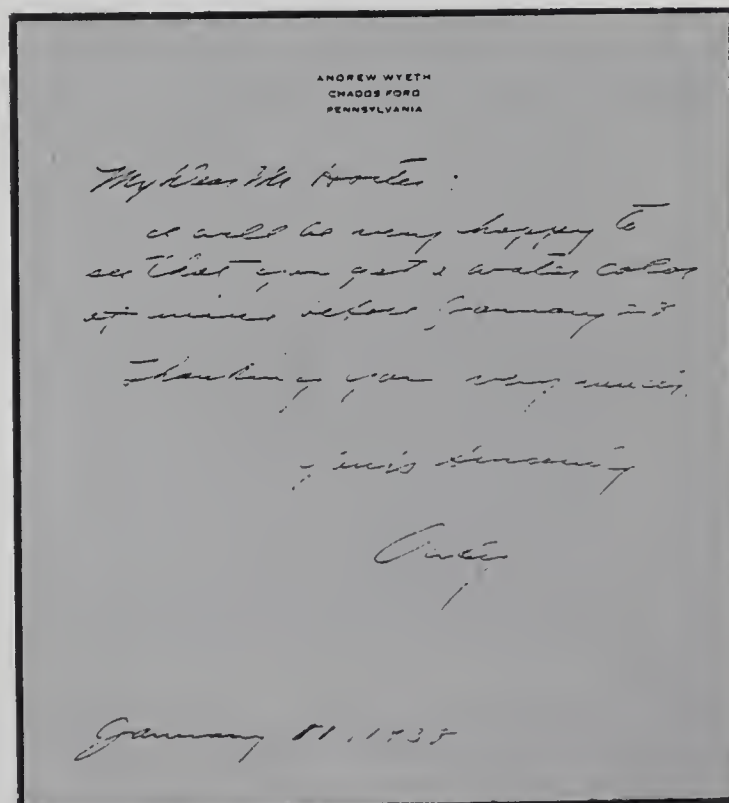 ANDREW WYETH
CHADDS FORD
PENNSYLVANIA
My Dear Mr
will be very happy to
see that you get a water color
of mine before January
Thanking you very much.
yours sincerely
Andy
January 11, 1938